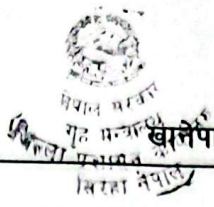 नेपाल सरकार
गृह मन्त्रालय
जिल्ला प्रशासन
खानेप
सिरहा नेपाल